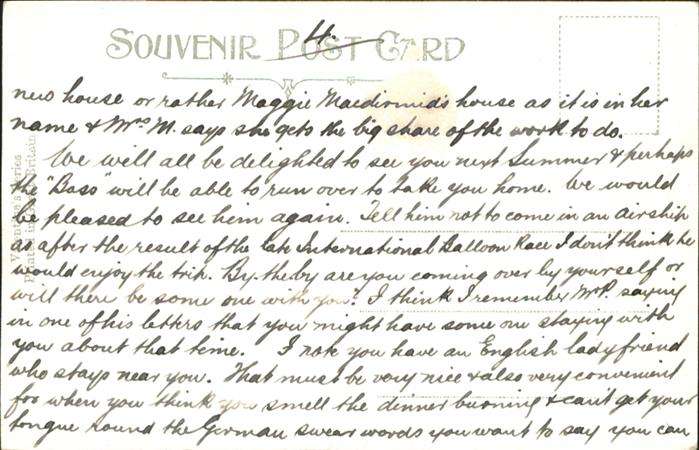 4.
SOUVENIR POST CARD
new house or rather Maggie Macdirmid's house as it is in her
name & Mrs M. says she gets the big share of the work to do.
We will all be delighted to see you next Summer & perhaps
the "Bass" will be able to run over to take you home. We would
be pleased to see him again. Tell him not to come in an airship
as after the result of the late International Balloon Race I don't think he
would enjoy the trip. By the by are you coming over by yourself or
will there be some one with you? I think I remember Mr P. saying
in one of his letters that you might have some one staying with
you about that time. I note you have an English lady friend
who stays near you. That must be very nice & also very convenient
for when you think you smell the dinner burning & can't get your
tongue round the German swear words you want to say you can
Valentine's Series
Printed in Great Britain